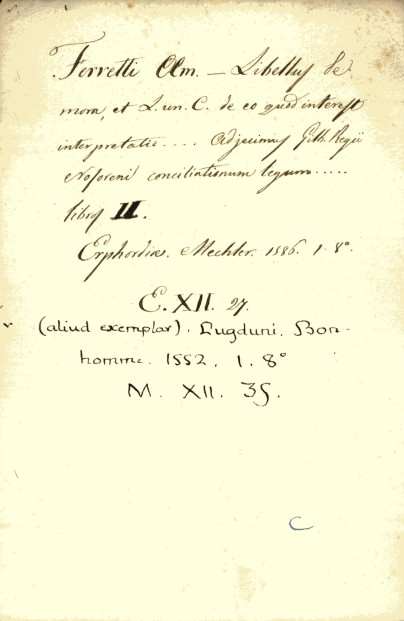 Ferretti Aem. — Libellus de
mora, et L. un. C. de eo quod interest
interpretatio.... Adjecimus Gith. Regii
Noforeni conciliationum legum.....
libros II.
Erphordiae. Mechler. 1586. 1. 8°.
E. XII. 27.
(aliud exemplar). Lugduni. Bon-
homme. 1552. 1. 8°
M. XII. 35.
C